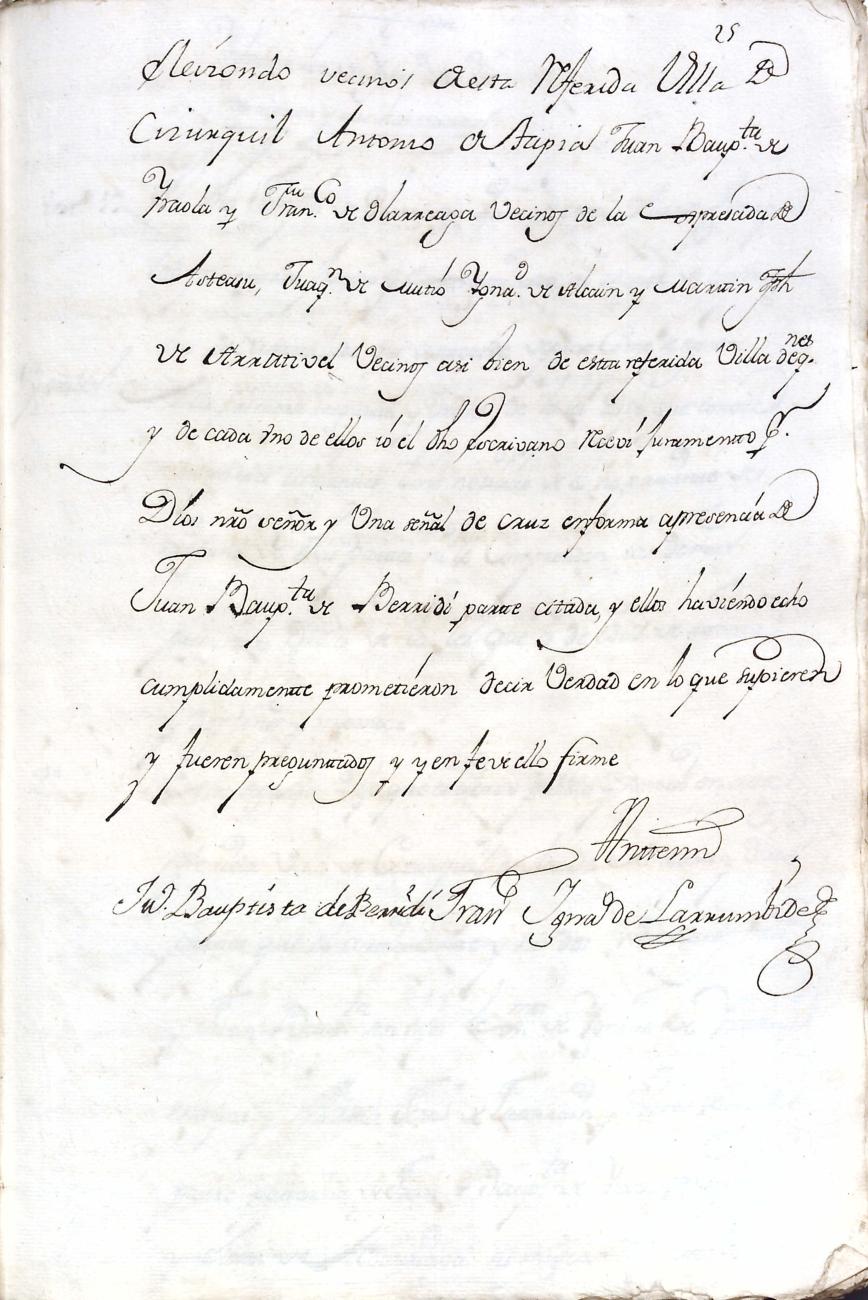 25
Eleizondo vecinos de esta Referida Villa de
Cizurquil Antonio de Tapia Juan Baup.ta de
Yraola y Fran.co de Olarreaga Vecinos de la expresada de
Asteasu, Juaq.n de Mutio Ygna.o de Alcain y Martin Jph
de Arrativel Vecinos asi bien de esta referida Villa deq.nes
y de cada vno de ellos io el dho escrivano Recivi juramentto p.r
Dios nr̃o señor y Una señal de cruz enforma apresencia de
Juan Baup.ta de Berridi partte citada, y ellos haviendo echo
cumplidamentte prometieron decir Verdad en lo que supieren
y fueren preguntados y y en fe de ello firme
Anttemi
Ju.o Bauptista de Berridi Fran.co Igna.o de Larrumbide